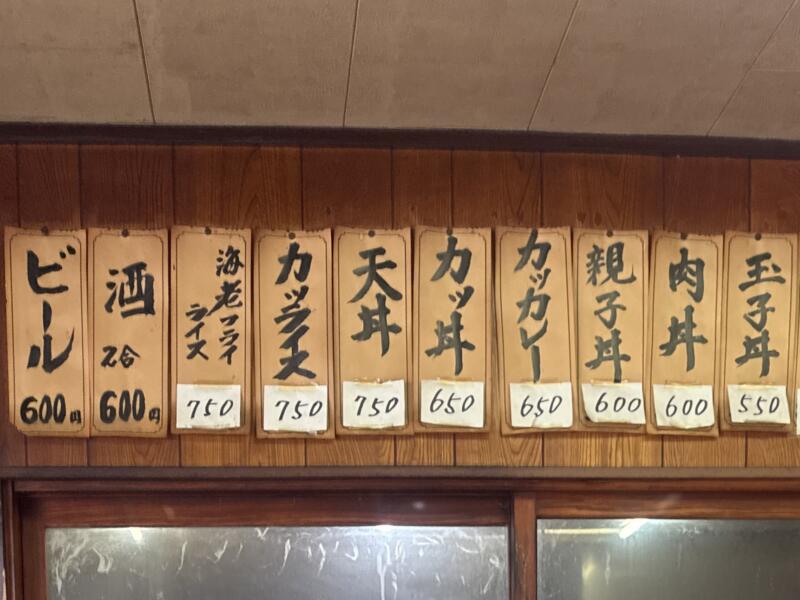 玉子丼
550
肉丼
600
親子丼
600
カツカレー
650
カツ丼
650
天丼
750
カツライス
750
海老フライ
ライス
750
酒
2合
600円
ビール
600円